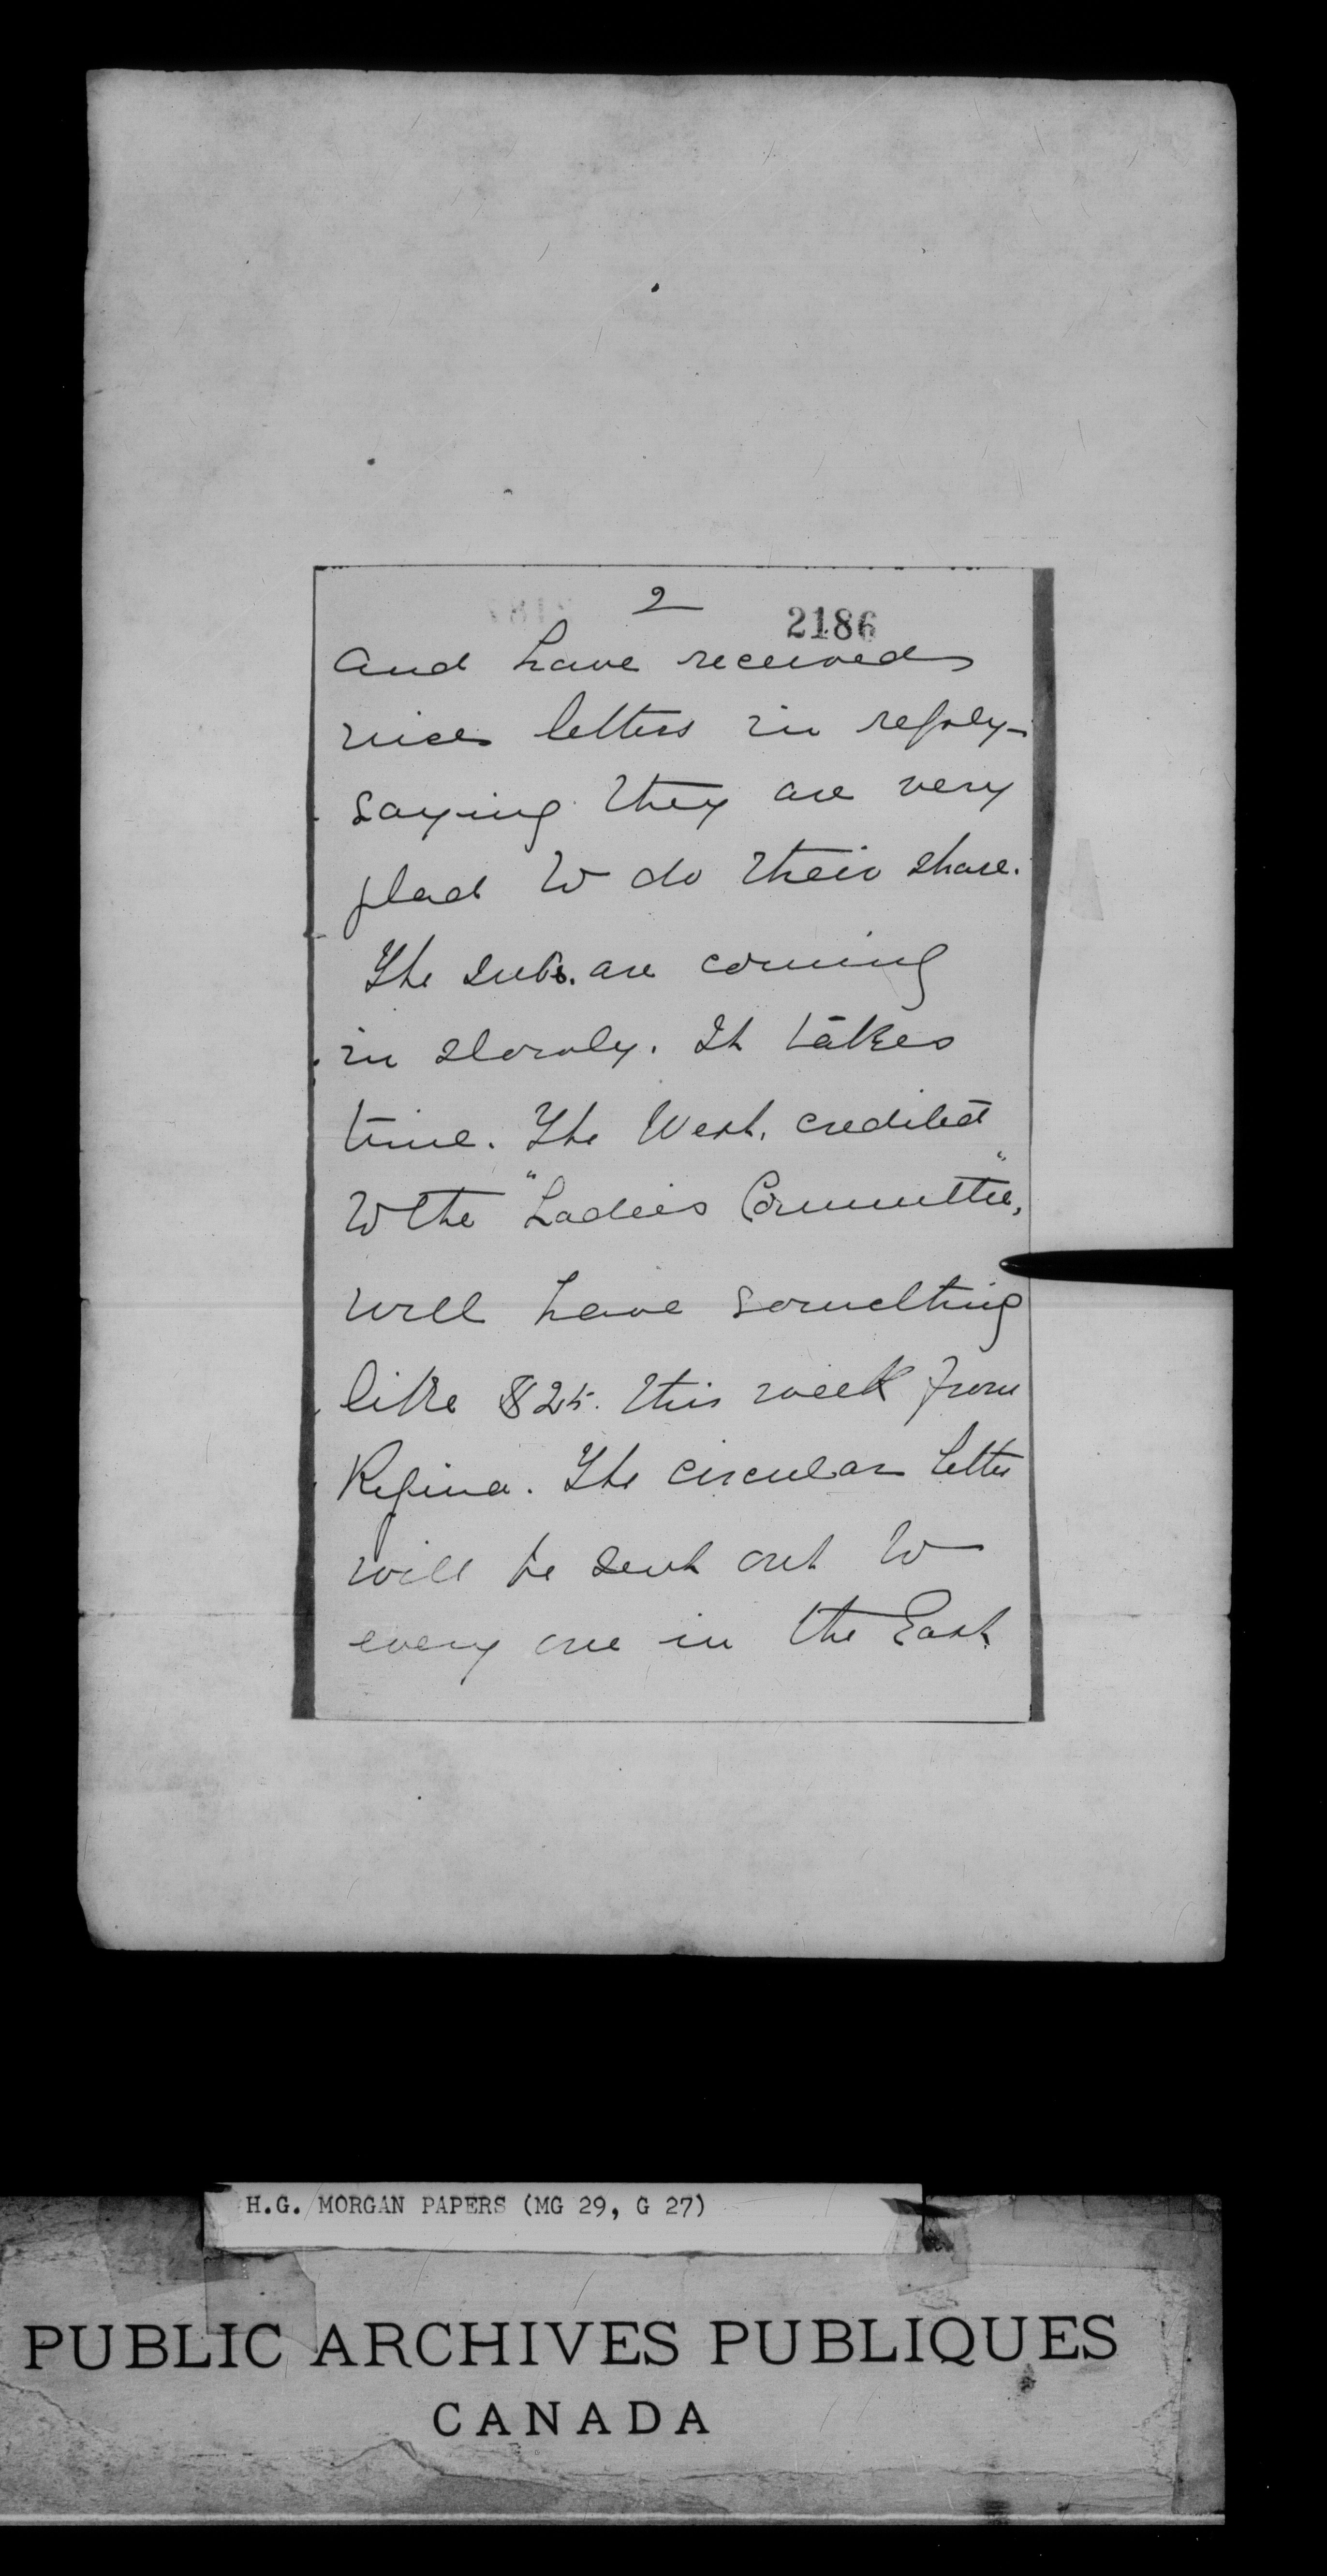 2
2186
and have received
nice letters in reply-
saying they are very
glad to do their share.
The subs. are coming
in slowly. It takes
time. The West, credited
to the "Ladies Committee",
will have something
like $25. this week from
Regina. The circular letter
will be sent out to
every one in the East
H.G. MORGAN PAPERS (MG 29, G 27)
PUBLIC ARCHIVES PUBLIQUES
CANADA